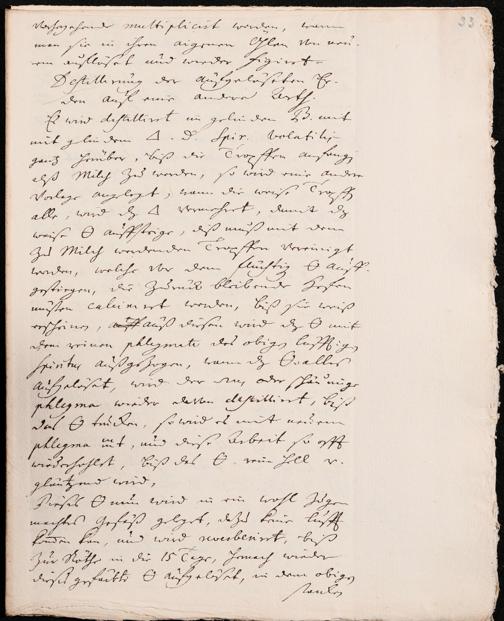 33
vorhergehende multiplicirt werden, wann
man sie in ihren eigenen Ohlen von neu-
em aufflöset und wieder figiret.
Destillirung der auffgelöseten Er-
den auff eine andere Arth.
Es wird destilliret in gelinden B. mit
mit gelindem 🜂. D. Spir. volatilis
ganz herüber, biß die Tropffen anfangen
alß Milch zu werden, so wird eine andre
Vorlage angelegt, wann die weiße Tropffen
alle, wird dz 🜂 vermehret, damit dz
weiße 🜔 auffsteige, dß muß mit denn
zu Milch werdenden Tropffen vereiniget
werden, welche vor dem flüchtig 🜔 auff-
gestiegen, die zurück bleibende
müßen calciniret werden, biß sie weiß
erscheinen, auß diesen wird dz 🜔 mit
dem reinen phlegmate des obigen
Spiritus außgezogen, wann dz 🜔 alles
auffgelöset, wird der oder
phlegma wieder davon destilliret, biß
das 🜔 trucken, so wird es mit neuem
phlegma und diese Arbeit so offt
wiederhohlet, biß das 🜔 rein hell v.
gläntzend wird,
Dieses 🜔 nun wird in ein wohl zuge-
machtes Gefäß geleget, dazu keine Lufft
kommen kan, und wird biß
zur Röthe in die 15 Tage, hernach wieder
dieses gefärbte 🜔 auffgelöset, in dem obigen